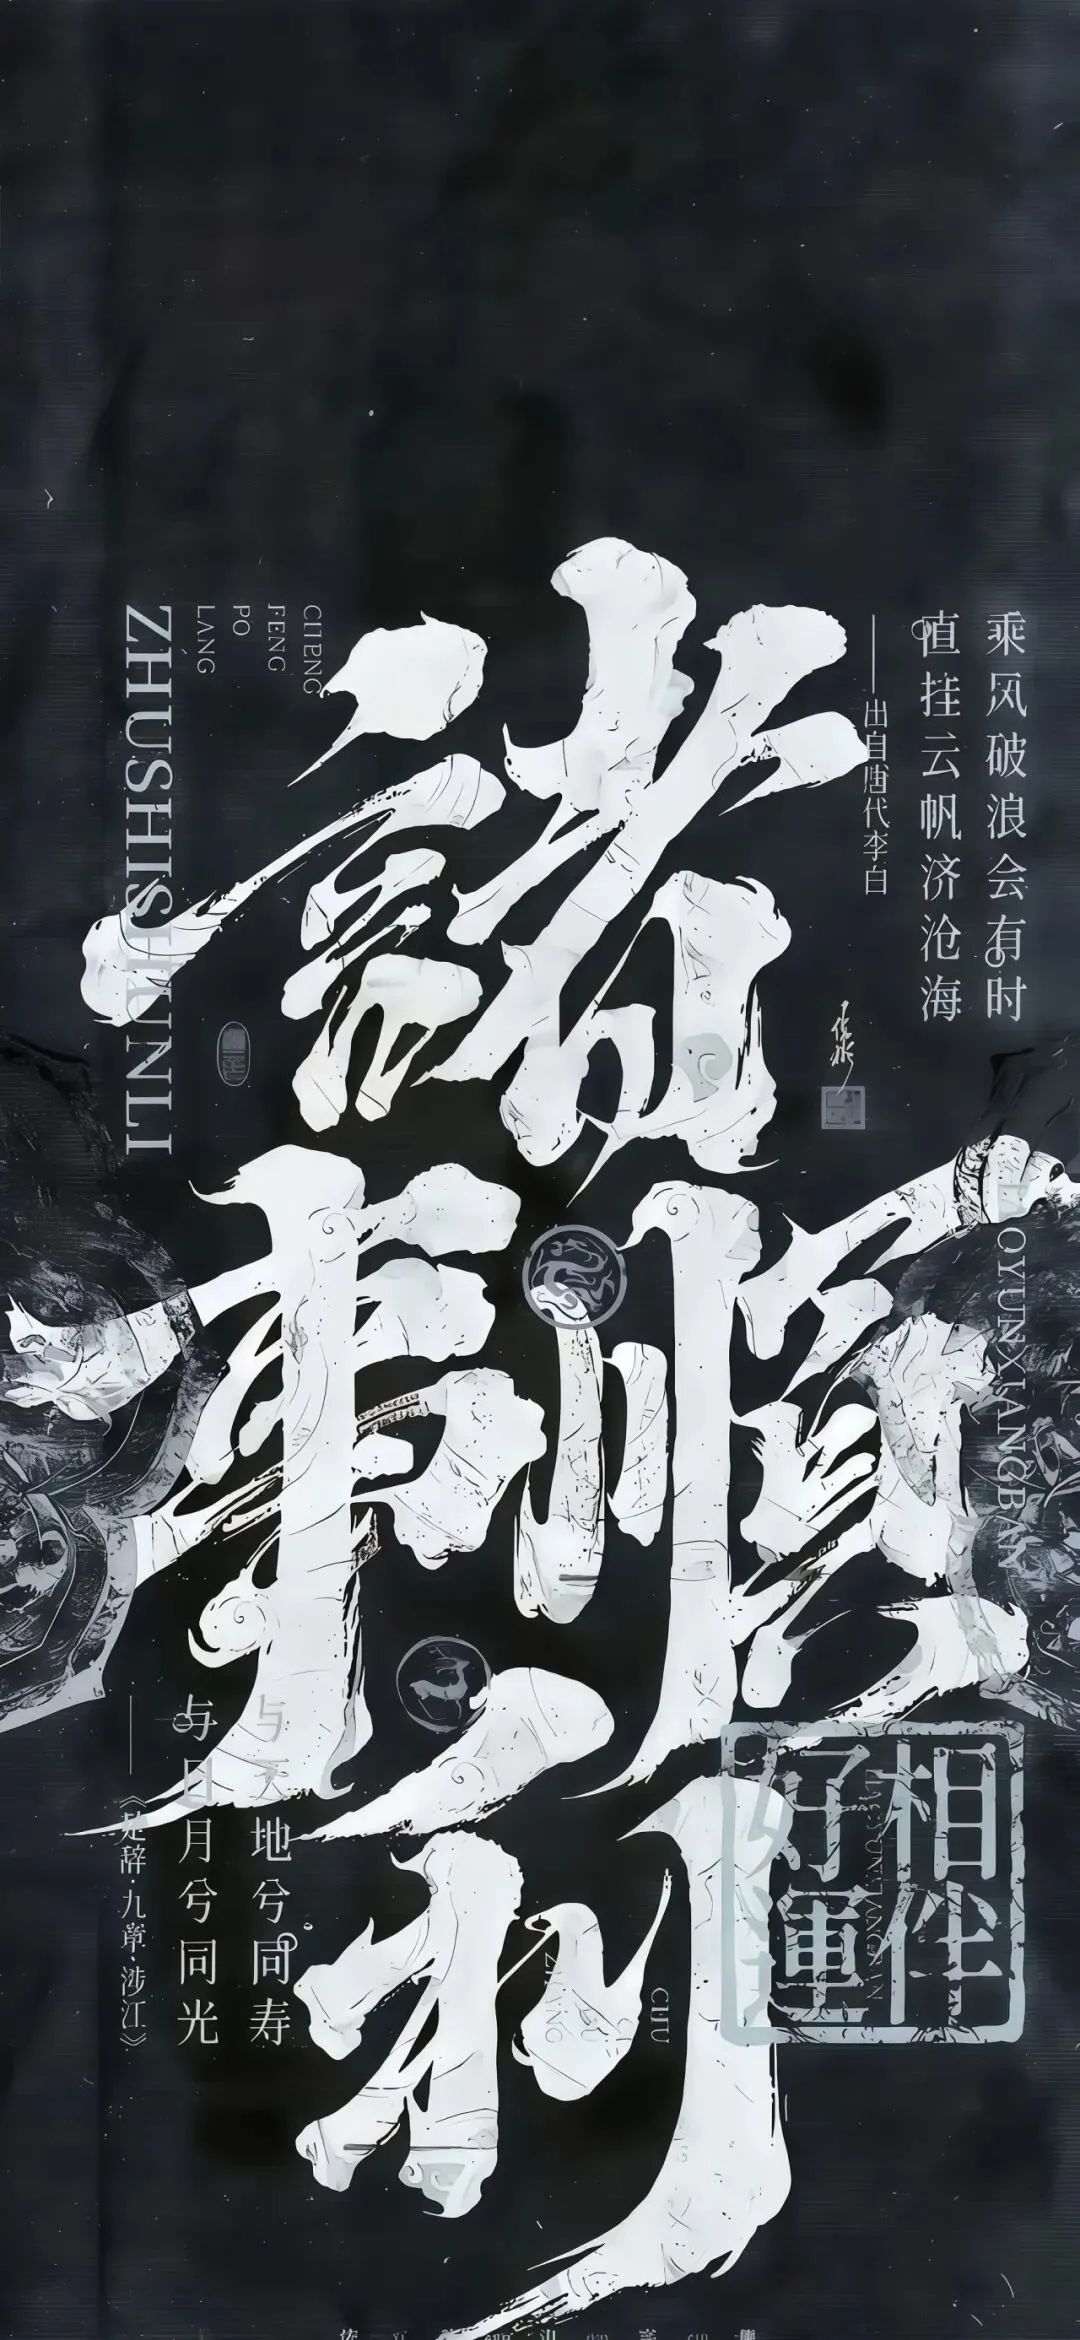 諸事順利
乘风破浪会有时
直挂云帆济沧海
——出自唐代李白
CHENG
FENG
PO
LANG
ZHUSHISHUNLI
OYUNXIANGBAN
相伴
好運
与天地兮同寿
与日月兮同光
——《楚辞·九章·涉江》